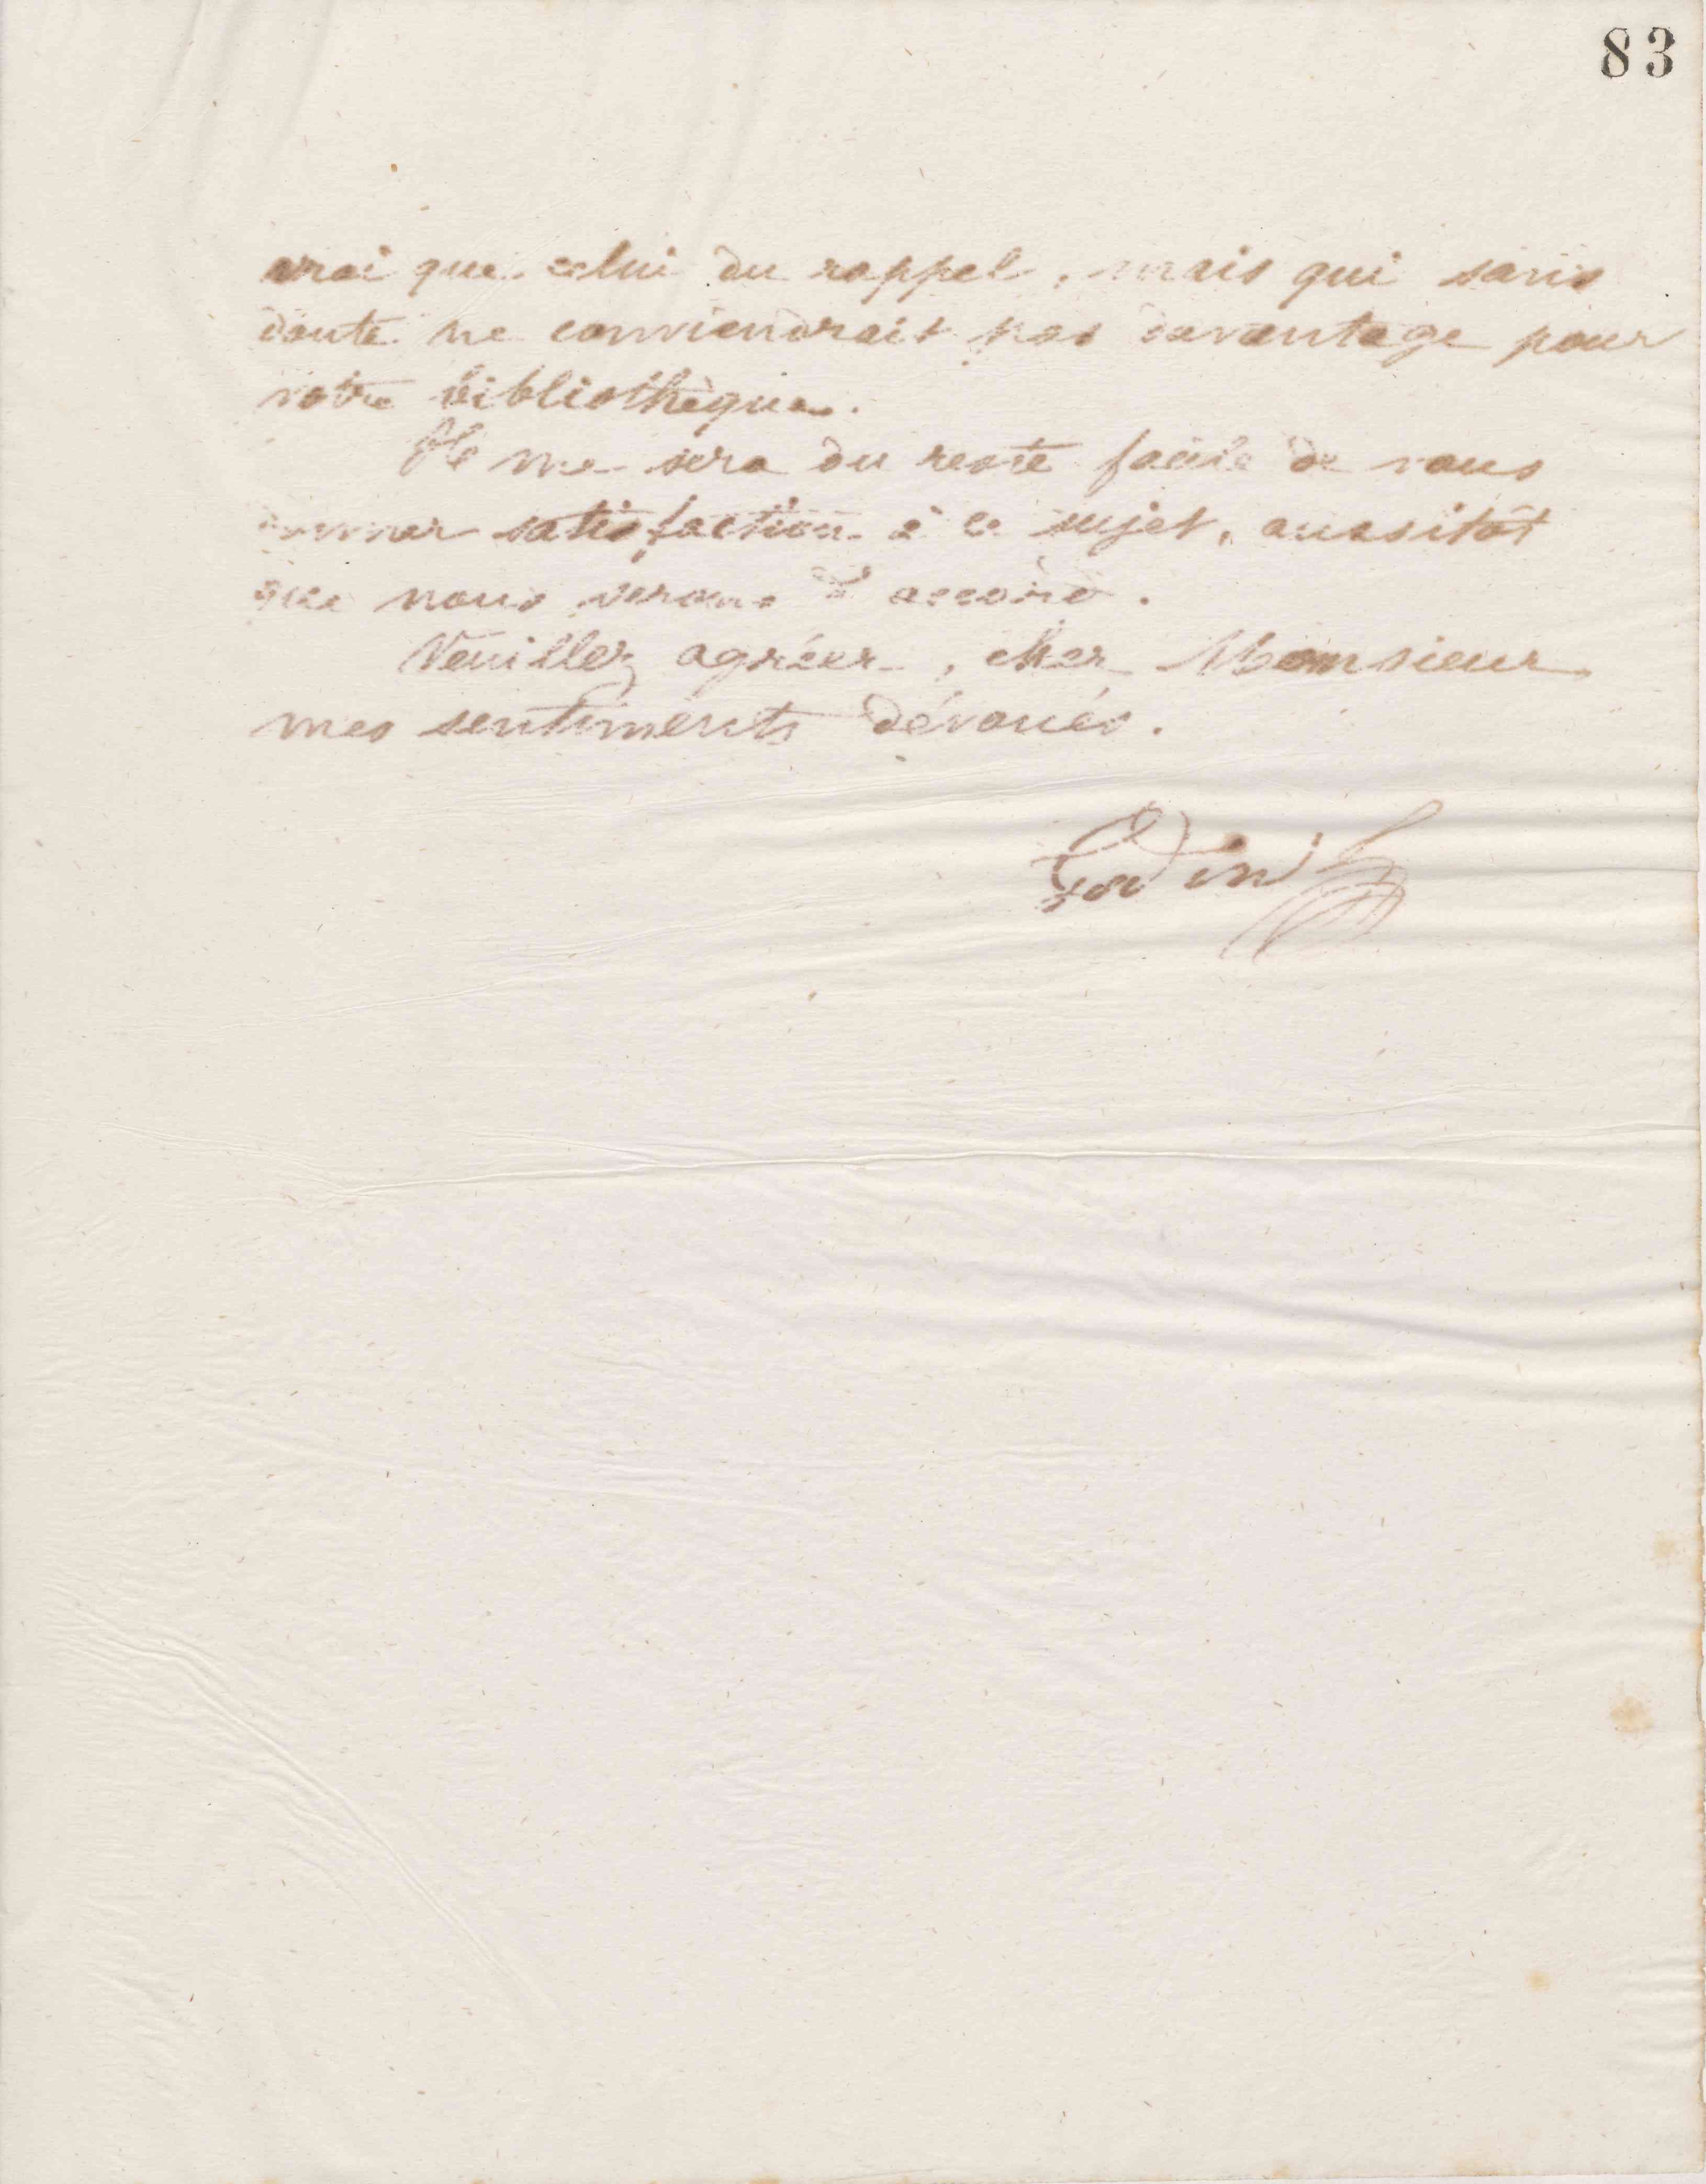 83
vrai que celui du rappel, mais qui sans
doute ne conviendrait pas davantage pour
votre bibliothèque.
Il me sera du reste facile de vous
donner satisfaction à ce sujet, aussitôt
que nous serons d'accord.
Veuillez agréer, cher Monsieur
mes sentiments dévoués.
Godin